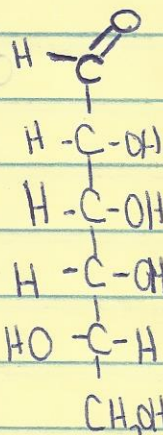 O
H - C
H - C - OH
H - C - OH
H - C - OH
HO - C - H
CH₂OH